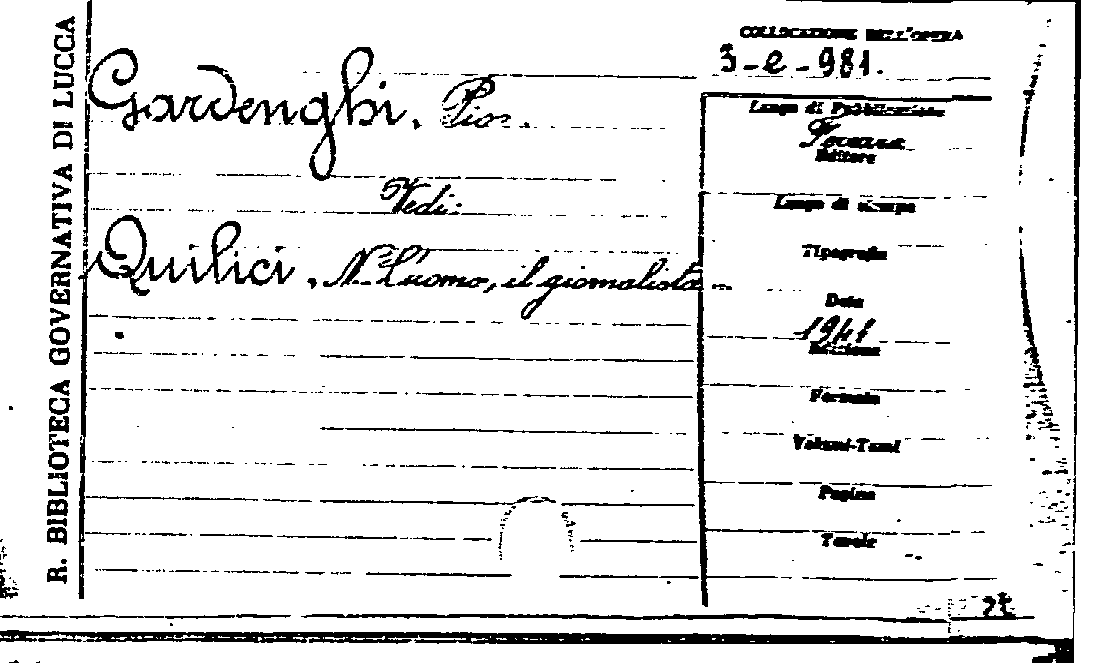 R. BIBLIOTECA GOVERNATIVA DI LUCCA
COLLOCAZIONE DELL'OPERA
3-e-981.
Gardenghi,
Vedi:
Quilici, N. L'uomo, il giornalista...
Luogo di Pubblicazione
Editore
Luogo di stampa
Tipografia
Data
1941
Edizione
Formato
Volumi-Tomi
Pagine
Tavole